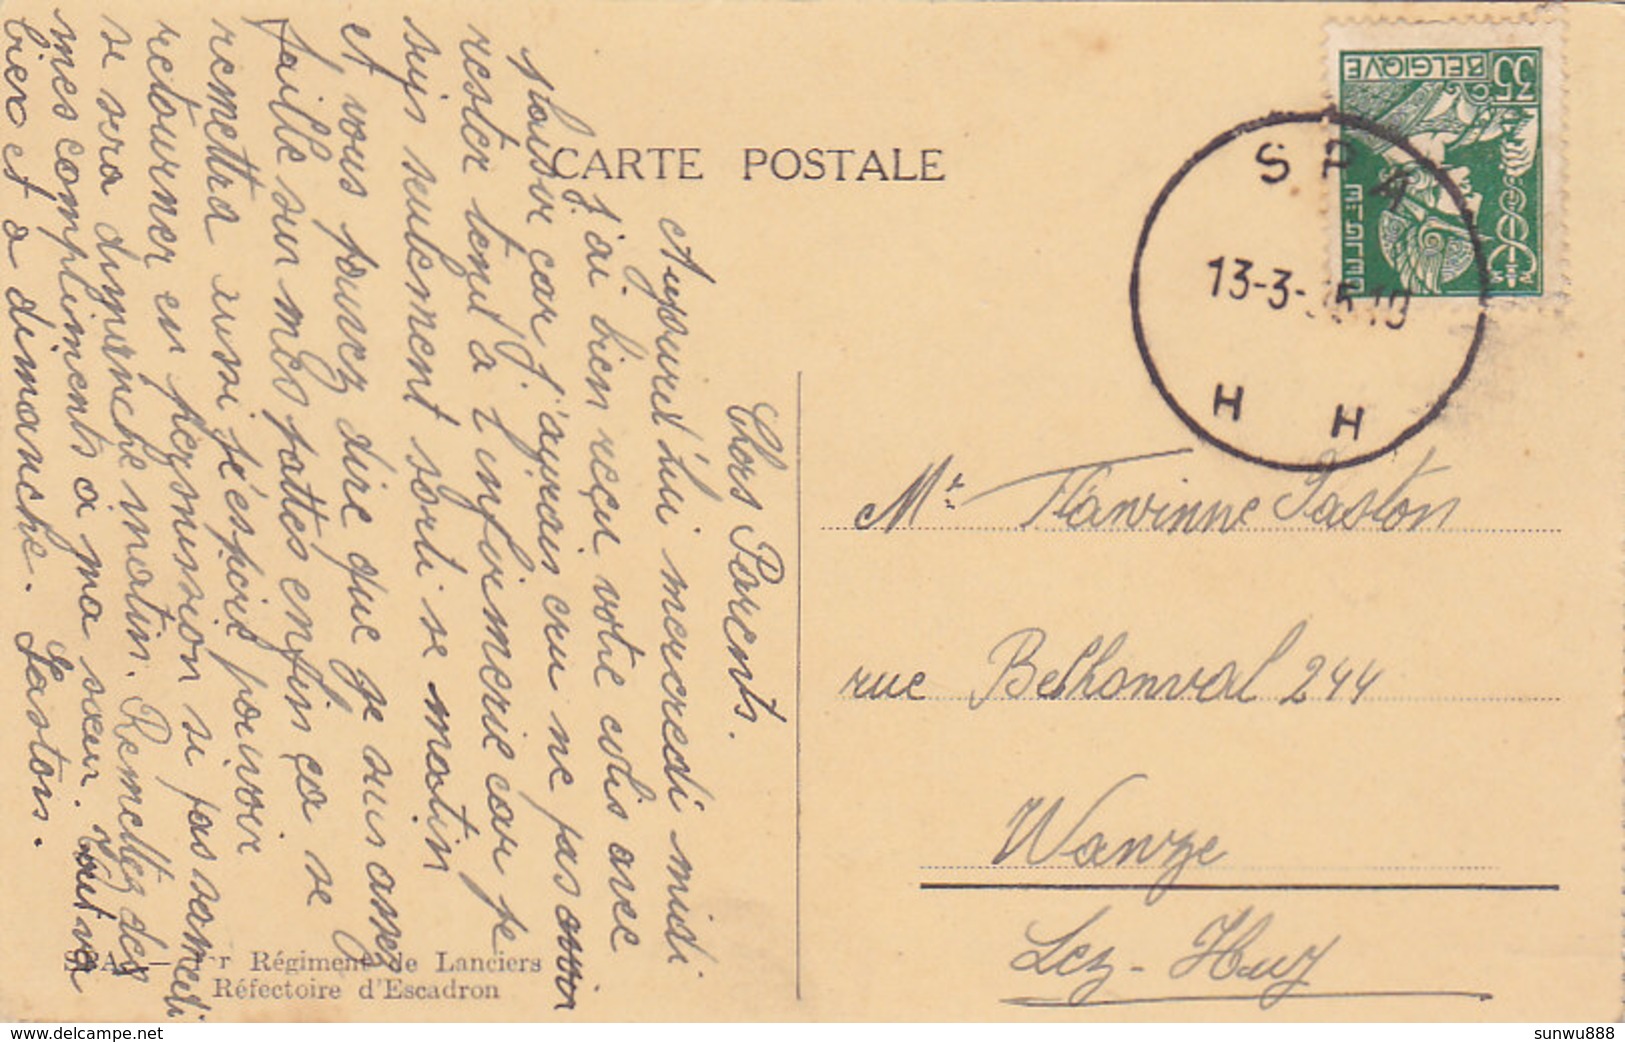 CARTE POSTALE
35
BELGIQVE
BELGIQUE
SPA
13-3-35 10
H H
Chers Parents.
Aujourd'hui mercredi midi
j'ai bien reçu votre colis avec
plaisir car j'aurais cru ne pas avoir
rester tout a l'infirmerie car je
suis seulement sorti se matin
et vous pouvez dire que je suis assez
faille sur mes pattes enfin ça se
remettra aussi j'éspère pouvoir
retourner en permission si pas samedi
se sera dimanche matin. Remettez des
mes compliments a ma sœur. tout va
bien et a dimanche. Gaston.
Mr Flawinne Gaston
rue Belhonval 244
Wanze
Lez-Huy
SPA. — 1er Régiment de Lanciers
Réfectoire d'Escadron
delcampe.net
sunwu888